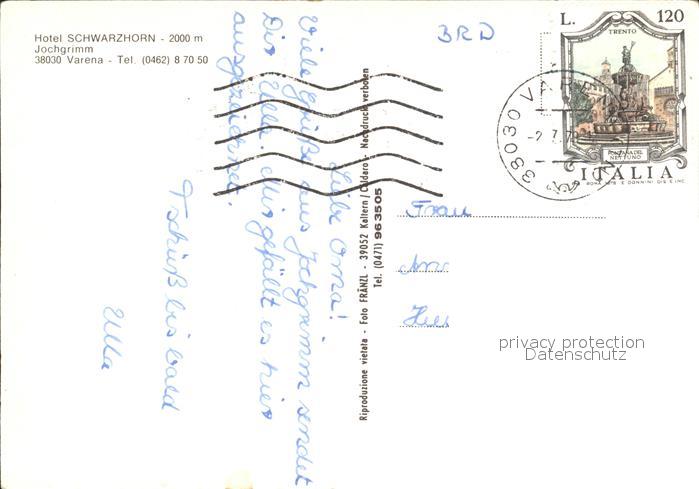 Hotel SCHWARZHORN - 2000 m
Jochgrimm
38030 Varena - Tel. (0462) 8 70 50
Liebe Oma!
Viele Grüße aus Jochgrimm sendet
Dir Ulla. Mir gefällt es hier
ausgezeichnet.
Tschüß bis bald
Ulla
Riproduzione vietata - Foto FRÄNZL - 39052 Kaltern/Caldaro - Nachdruck verboten
Tel. (0471) 963505
BRD
L. 120
TRENTO
FONTANA DEL
NETTUNO
ITALIA
38030 VAR
-2.7.7
Frau
privacy protection
Datenschutz